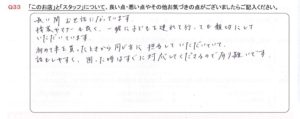 Q33 「このお店」と「スタッフ」について、良い点・悪い点やその他お気づきの点がございましたらご記入ください。
長い間お世話になっています
接客やマナーも良く、一緒に子どもを連れて行っても親切にして
いただいています
初めて車を買ったときから同じ方に担当していただいていて、
話もしやすく、困った時はすぐに対応してくださるので有り難いです。